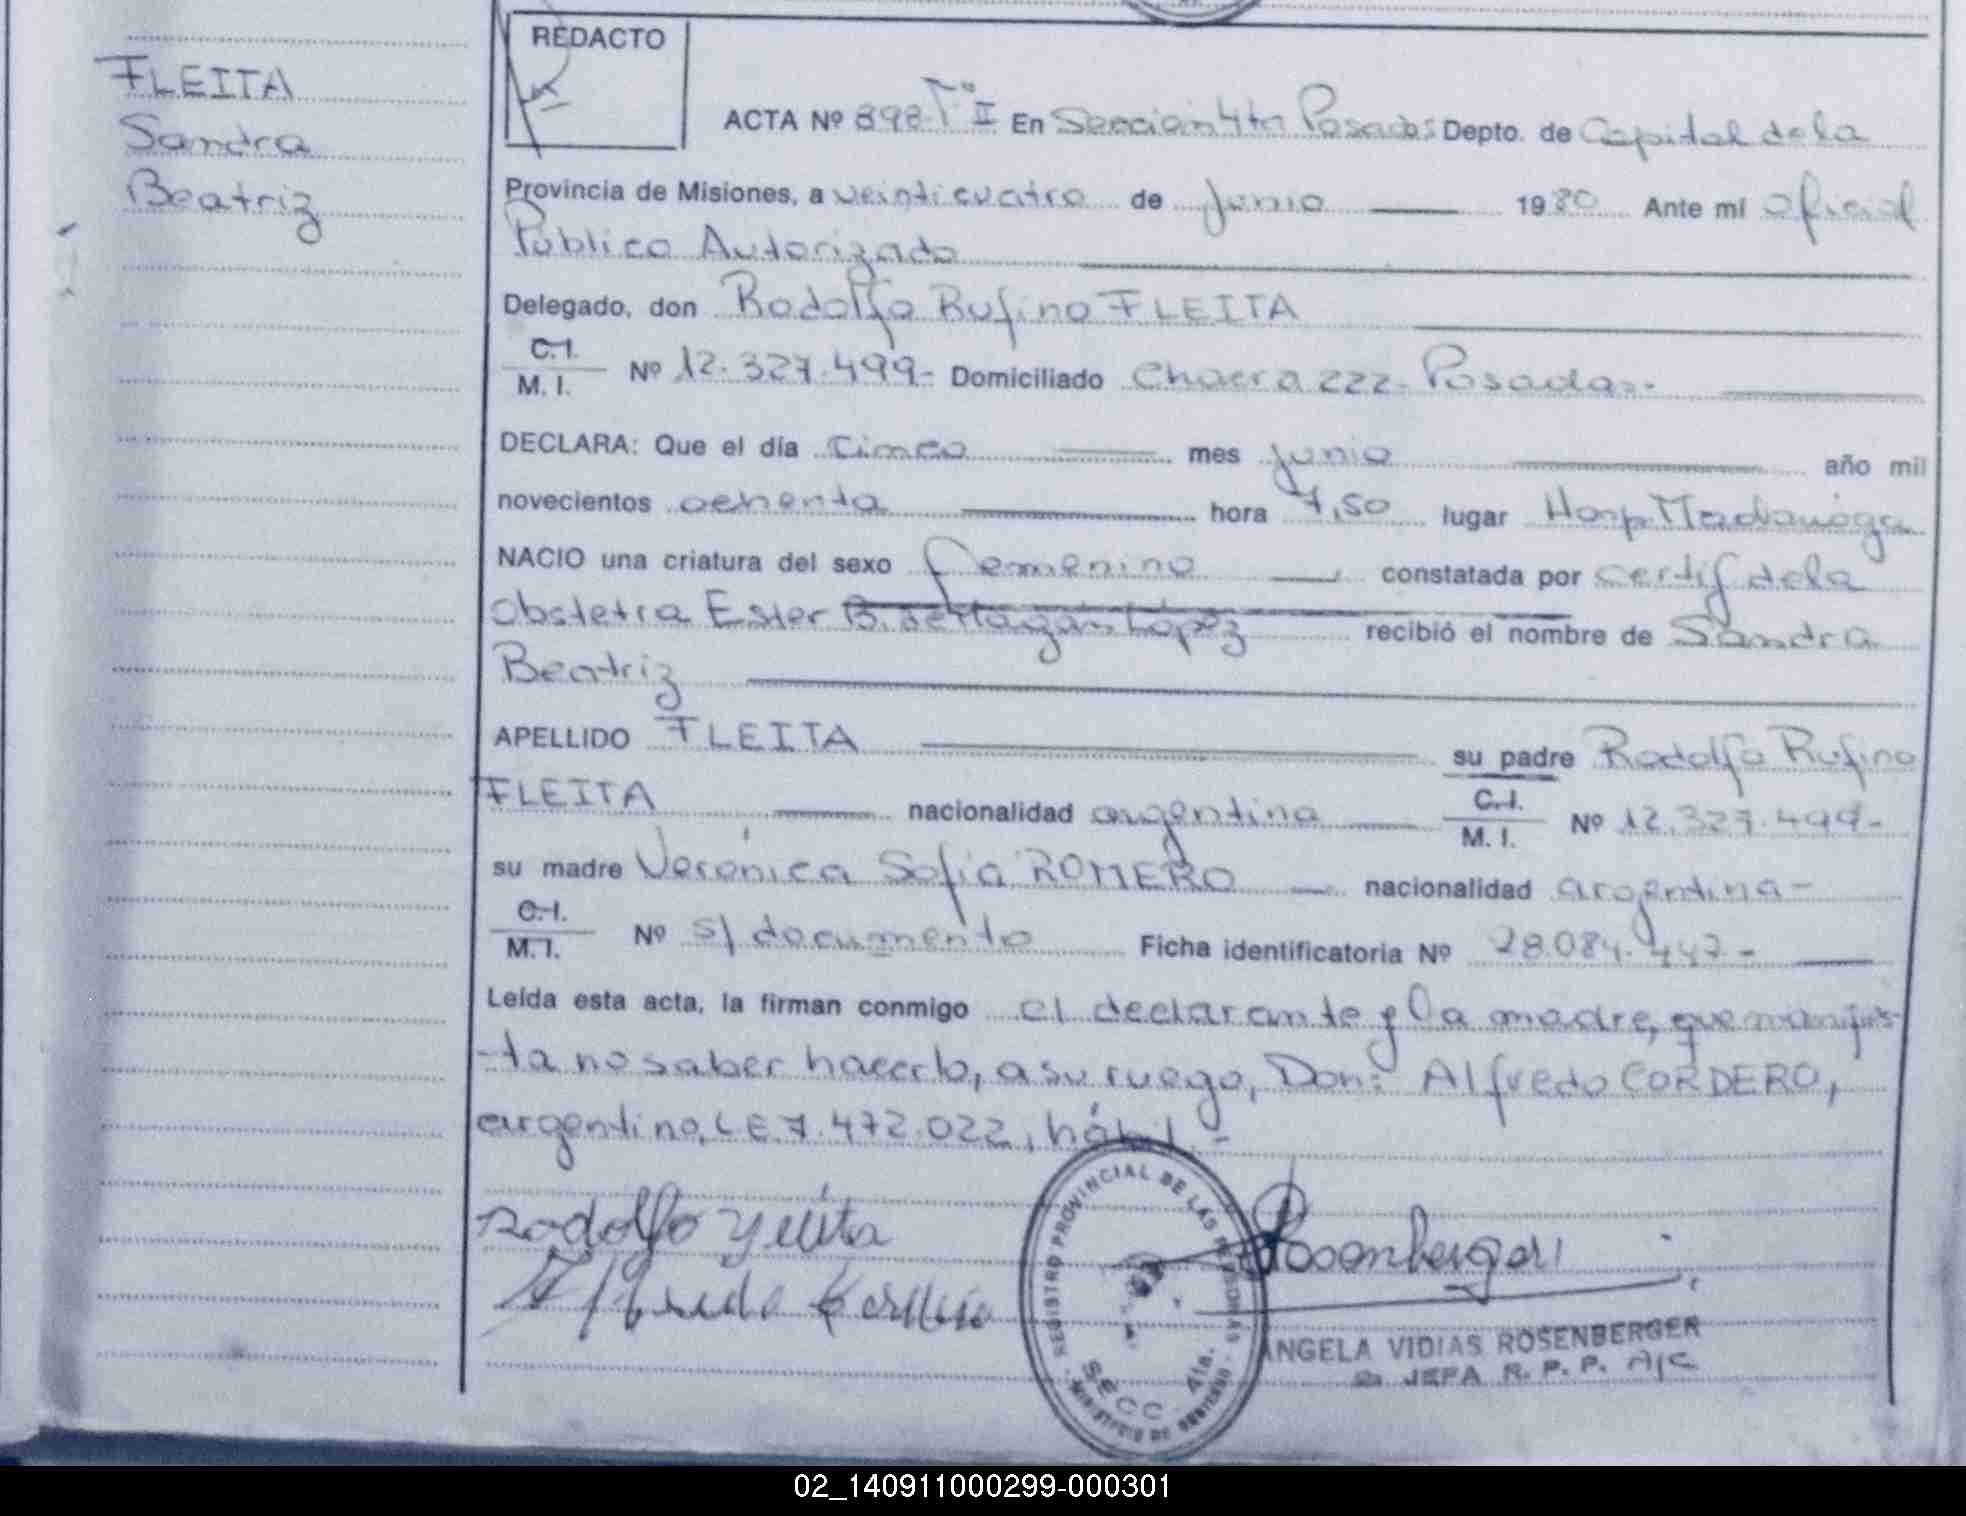 FLEITA
Sandra
Beatriz
REDACTO
ACTA Nº 898 Tº II En Sección 4ta Posadas Depto. de Capital de la
Provincia de Misiones, a veinticuatro de Junio 1980 Ante mí Oficial
Público Autorizado
Delegado, don Rodolfo Rufino FLEITA
C.I. / M. I. Nº 12.327.499- Domiciliado Chacra 222- Posadas.-
DECLARA: Que el día cinco mes junio año mil
novecientos ochenta hora 7,50 lugar Hosp. Madariaga
NACIO una criatura del sexo femenino constatada por certif de la
Obstetra Ester B. López recibió el nombre de Sandra
Beatriz
APELLIDO FLEITA su padre Rodolfo Rufino
FLEITA nacionalidad argentina C.I. / M. I. Nº 12.327.499-
su madre Verónica Sofía ROMERO nacionalidad argentina-
C.I. / M. I. Nº s/documento Ficha identificatoria Nº 28.084.447-
Leída esta acta, la firman conmigo el declarante y la madre, que manifies-
-ta no saber hacerlo, a su ruego, Don: Alfredo CORDERO,
argentino, L E 7.472.022, hábil.-
Rodolfo Fleita
Alfredo Cordero
Rosenberger
REGISTRO PROVINCIAL DE LAS PERSONAS
SECC 4ta.
MINISTERIO DE GOBIERNO
ANGELA VIDIAS ROSENBERGER
JEFA R. P. P. A/C
02_140911000299-000301